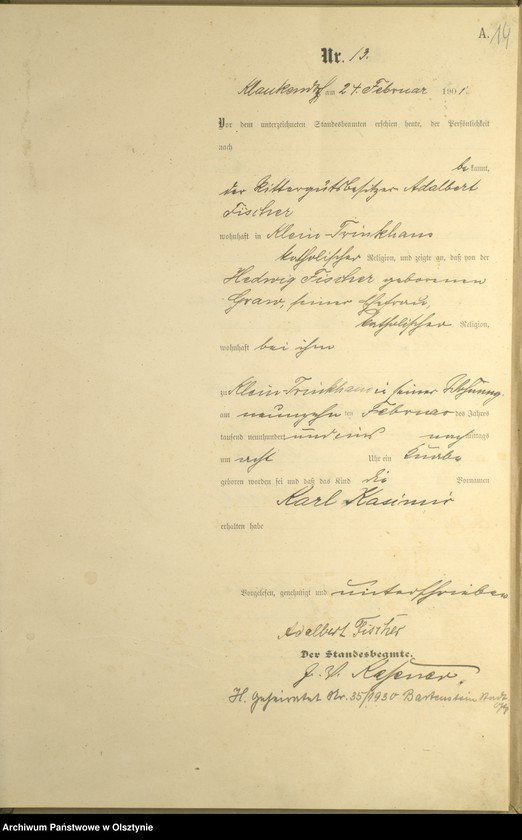 A. 14
Nr. 13.
Klaukendorf am 24. Februar 1901.
Vor dem unterzeichneten Standesbeamten erschien heute, der Persönlichkeit
nach
bekannt,
der Rittergutsbesitzer Adalbert
Fischer
wohnhaft in Klein-Trinkhaus
katholischer Religion, und zeigte an, daß von der
Hedwig Fischer geborenen
Graw, seiner Ehefrau,
katholischer Religion,
wohnhaft bei ihm
zu Klein-Trinkhaus in seiner Wohnung
am neunzehnten Februar des Jahres
tausend neunhundert und eins nachmittags
um acht Uhr ein Knabe
geboren worden sei und daß das Kind die Vornamen
Karl Kasimir
erhalten habe
Vorgelesen, genehmigt und unterschrieben
Adalbert Fischer
Der Standesbeamte.
J. V.
H. Geheiratet Nr. 35/1930 Bartenstein Stadt
Archiwum Państwowe w Olsztynie